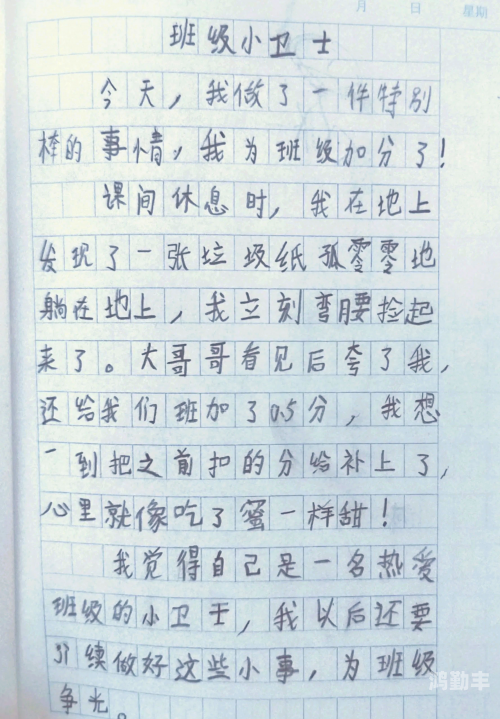 月 日 星期
班级小卫士
今天，我做了一件特别
棒的事情，我为班级加分了！
课间休息时，我在地上
发现了一张垃圾纸孤零零地
躺在地上，我立刻弯腰捡起
来了。大哥哥看见后夸了我，
还给我们班加了0.5分，我想
一到把之前扣的分给补上了，
心里就像吃了蜜一样甜！
我觉得自己是一名热爱
班级的小卫士，我以后还要
续做好这些小事，为班级
争光。
鸿勤丰